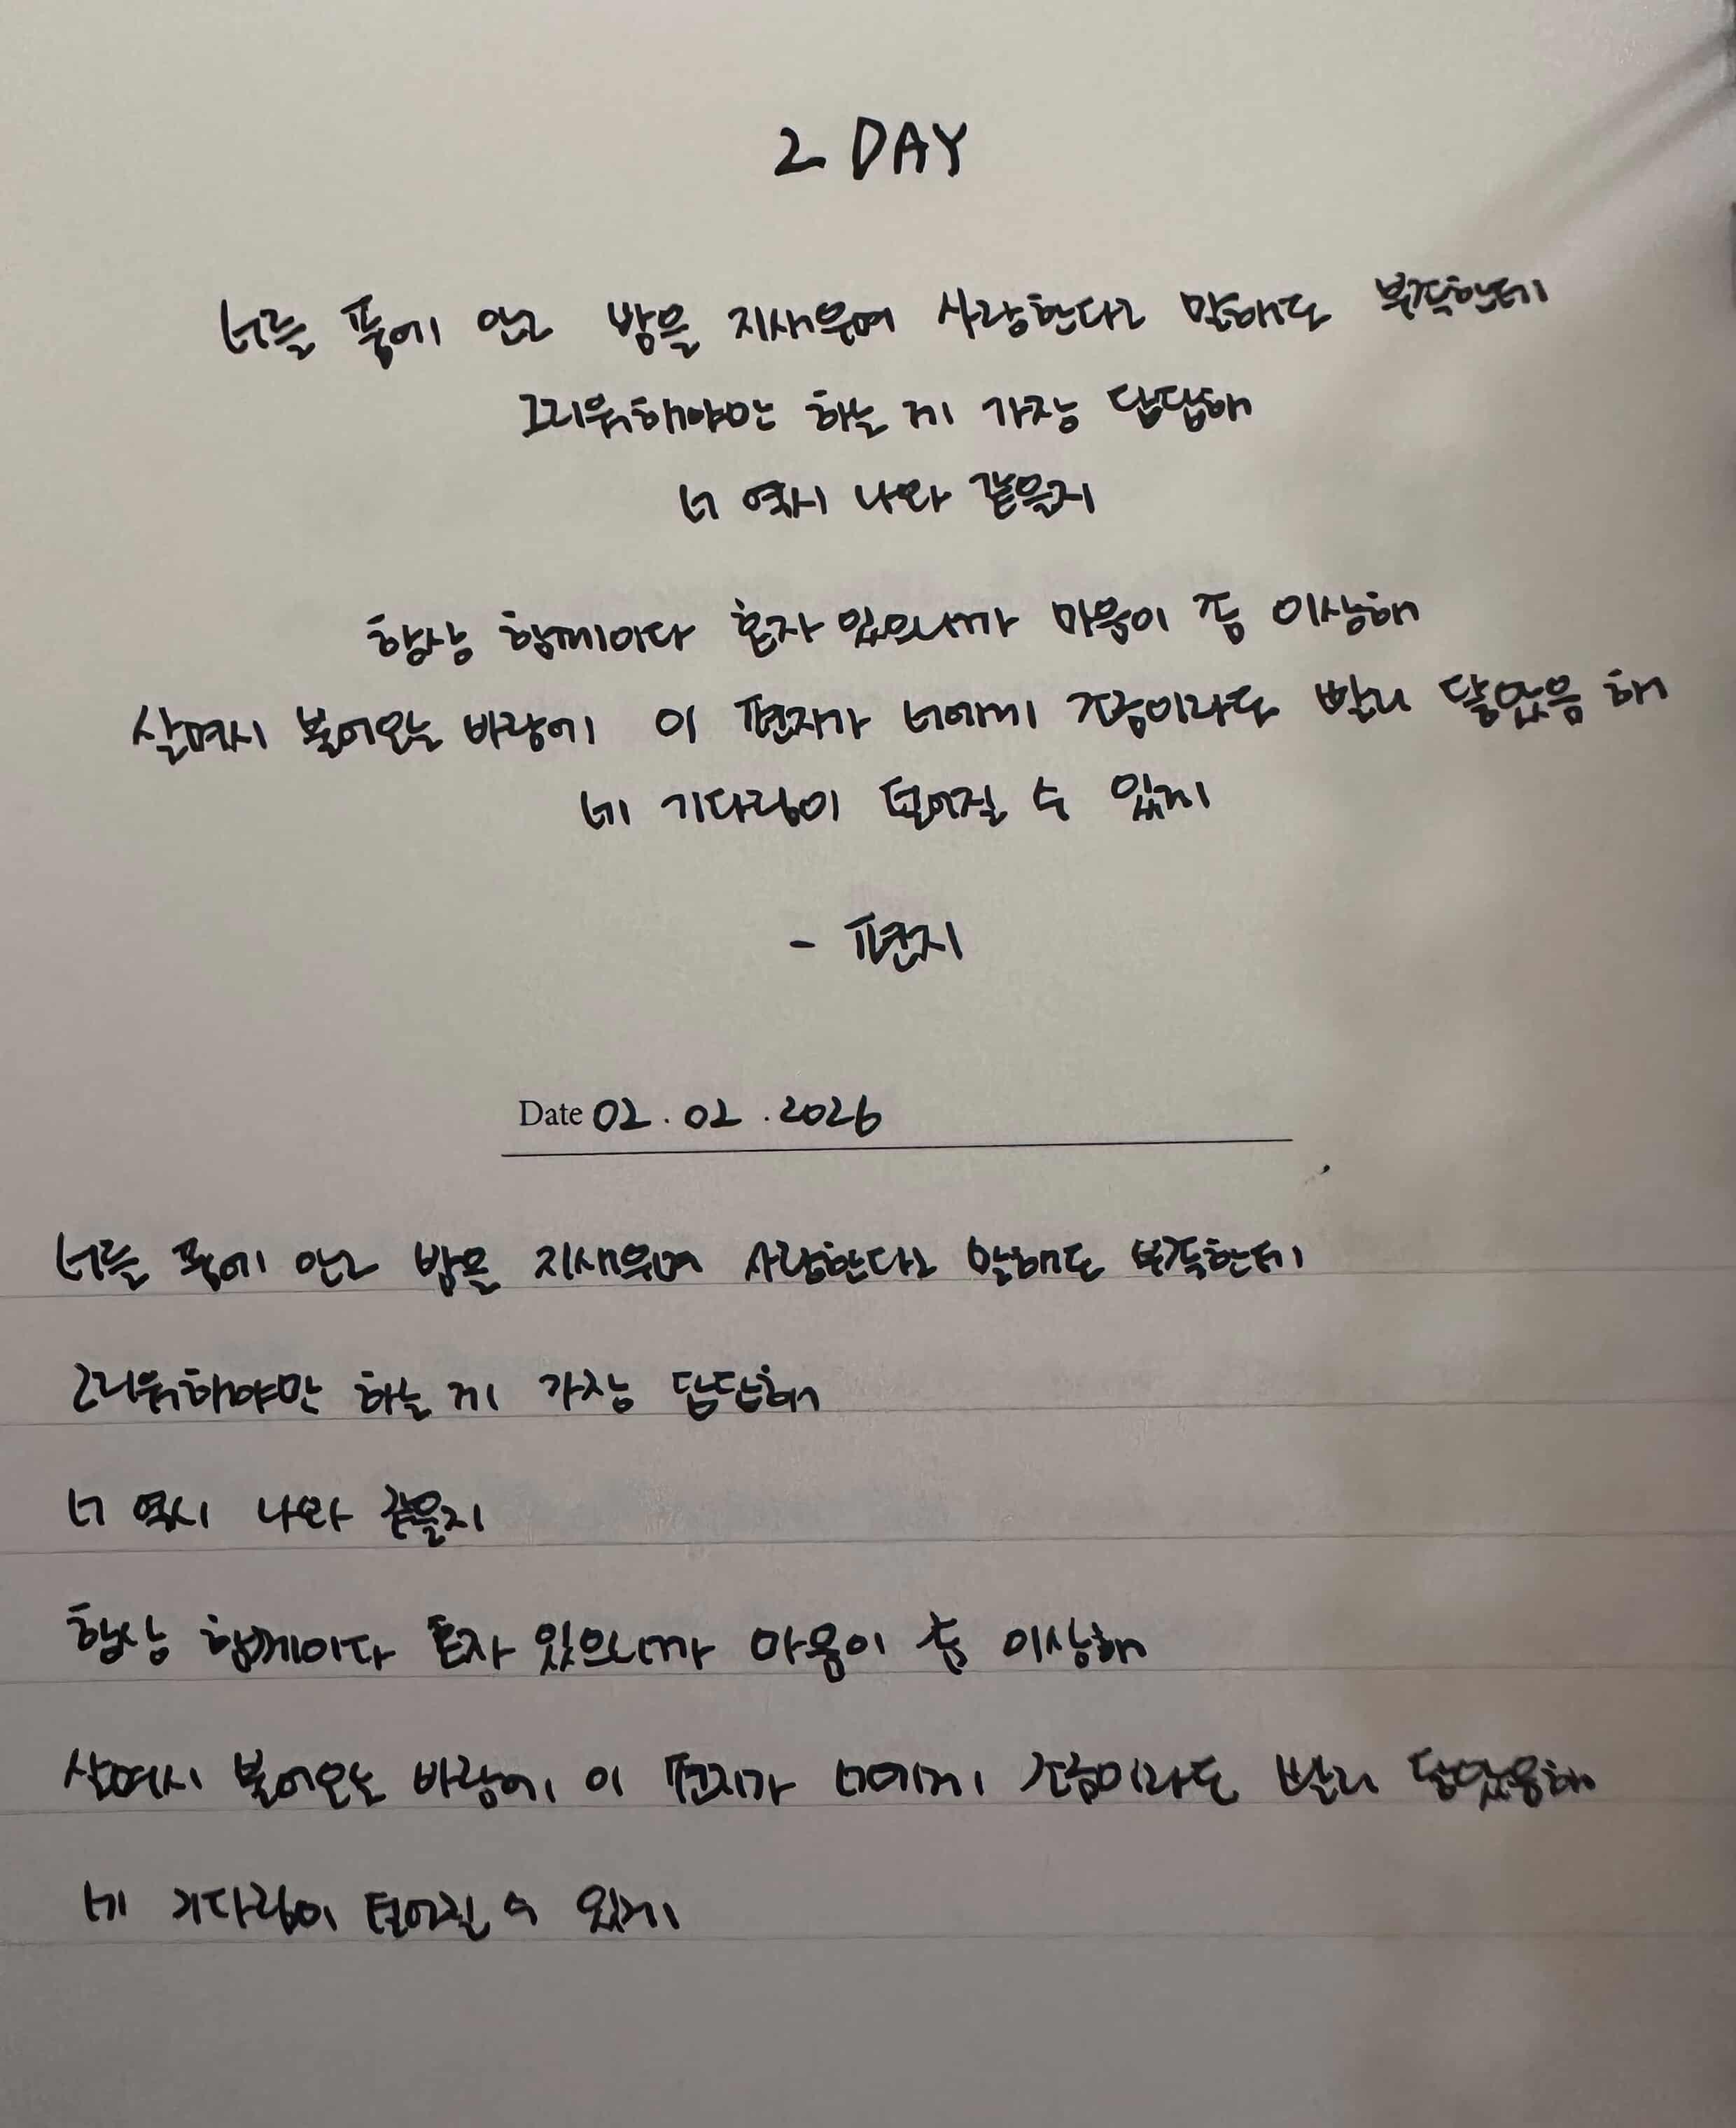 2 DAY
너를 품에 안고 밤을 지새우며 사랑한다고 말해도 부족한데
그리워해야만 하는 게 가장 답답해
너 역시 나와 같을지
항상 함께이다 혼자 있으니까 마음이 좀 이상해
살며시 불어오는 바람에 이 편지가 너에게 조금이라도 빨리 닿았음 해
네 기다림이 덜어질 수 있게
- 편지
Date 02.02.2026
너를 품에 안고 밤을 지새우며 사랑한다고 말해도 부족한데
그리워하야만 하는 게 가장 답답해
너 역시 나와 같을지
항상 함께이다 혼자 있으니까 마음이 좀 이상해
살며시 불어오는 바람에 이 편지가 너에게 조금이라도 빨리 닿았음해
네 기다림이 덜어질 수 있게